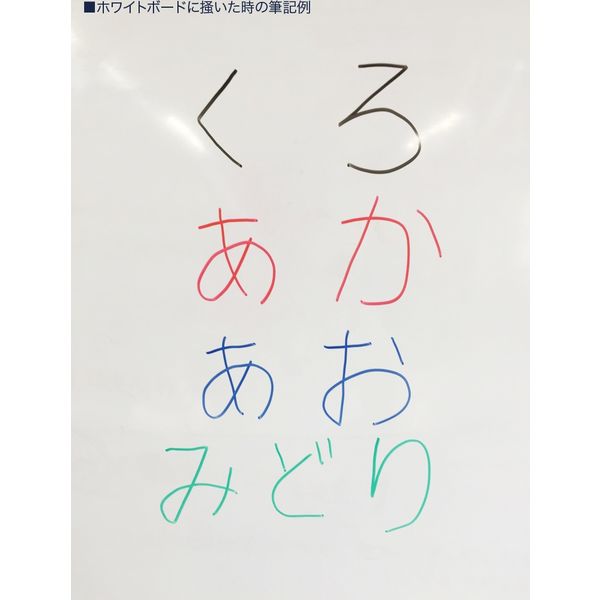 ■ホワイトボードに掻いた時の筆記例
くろ
あか
あお
みどり